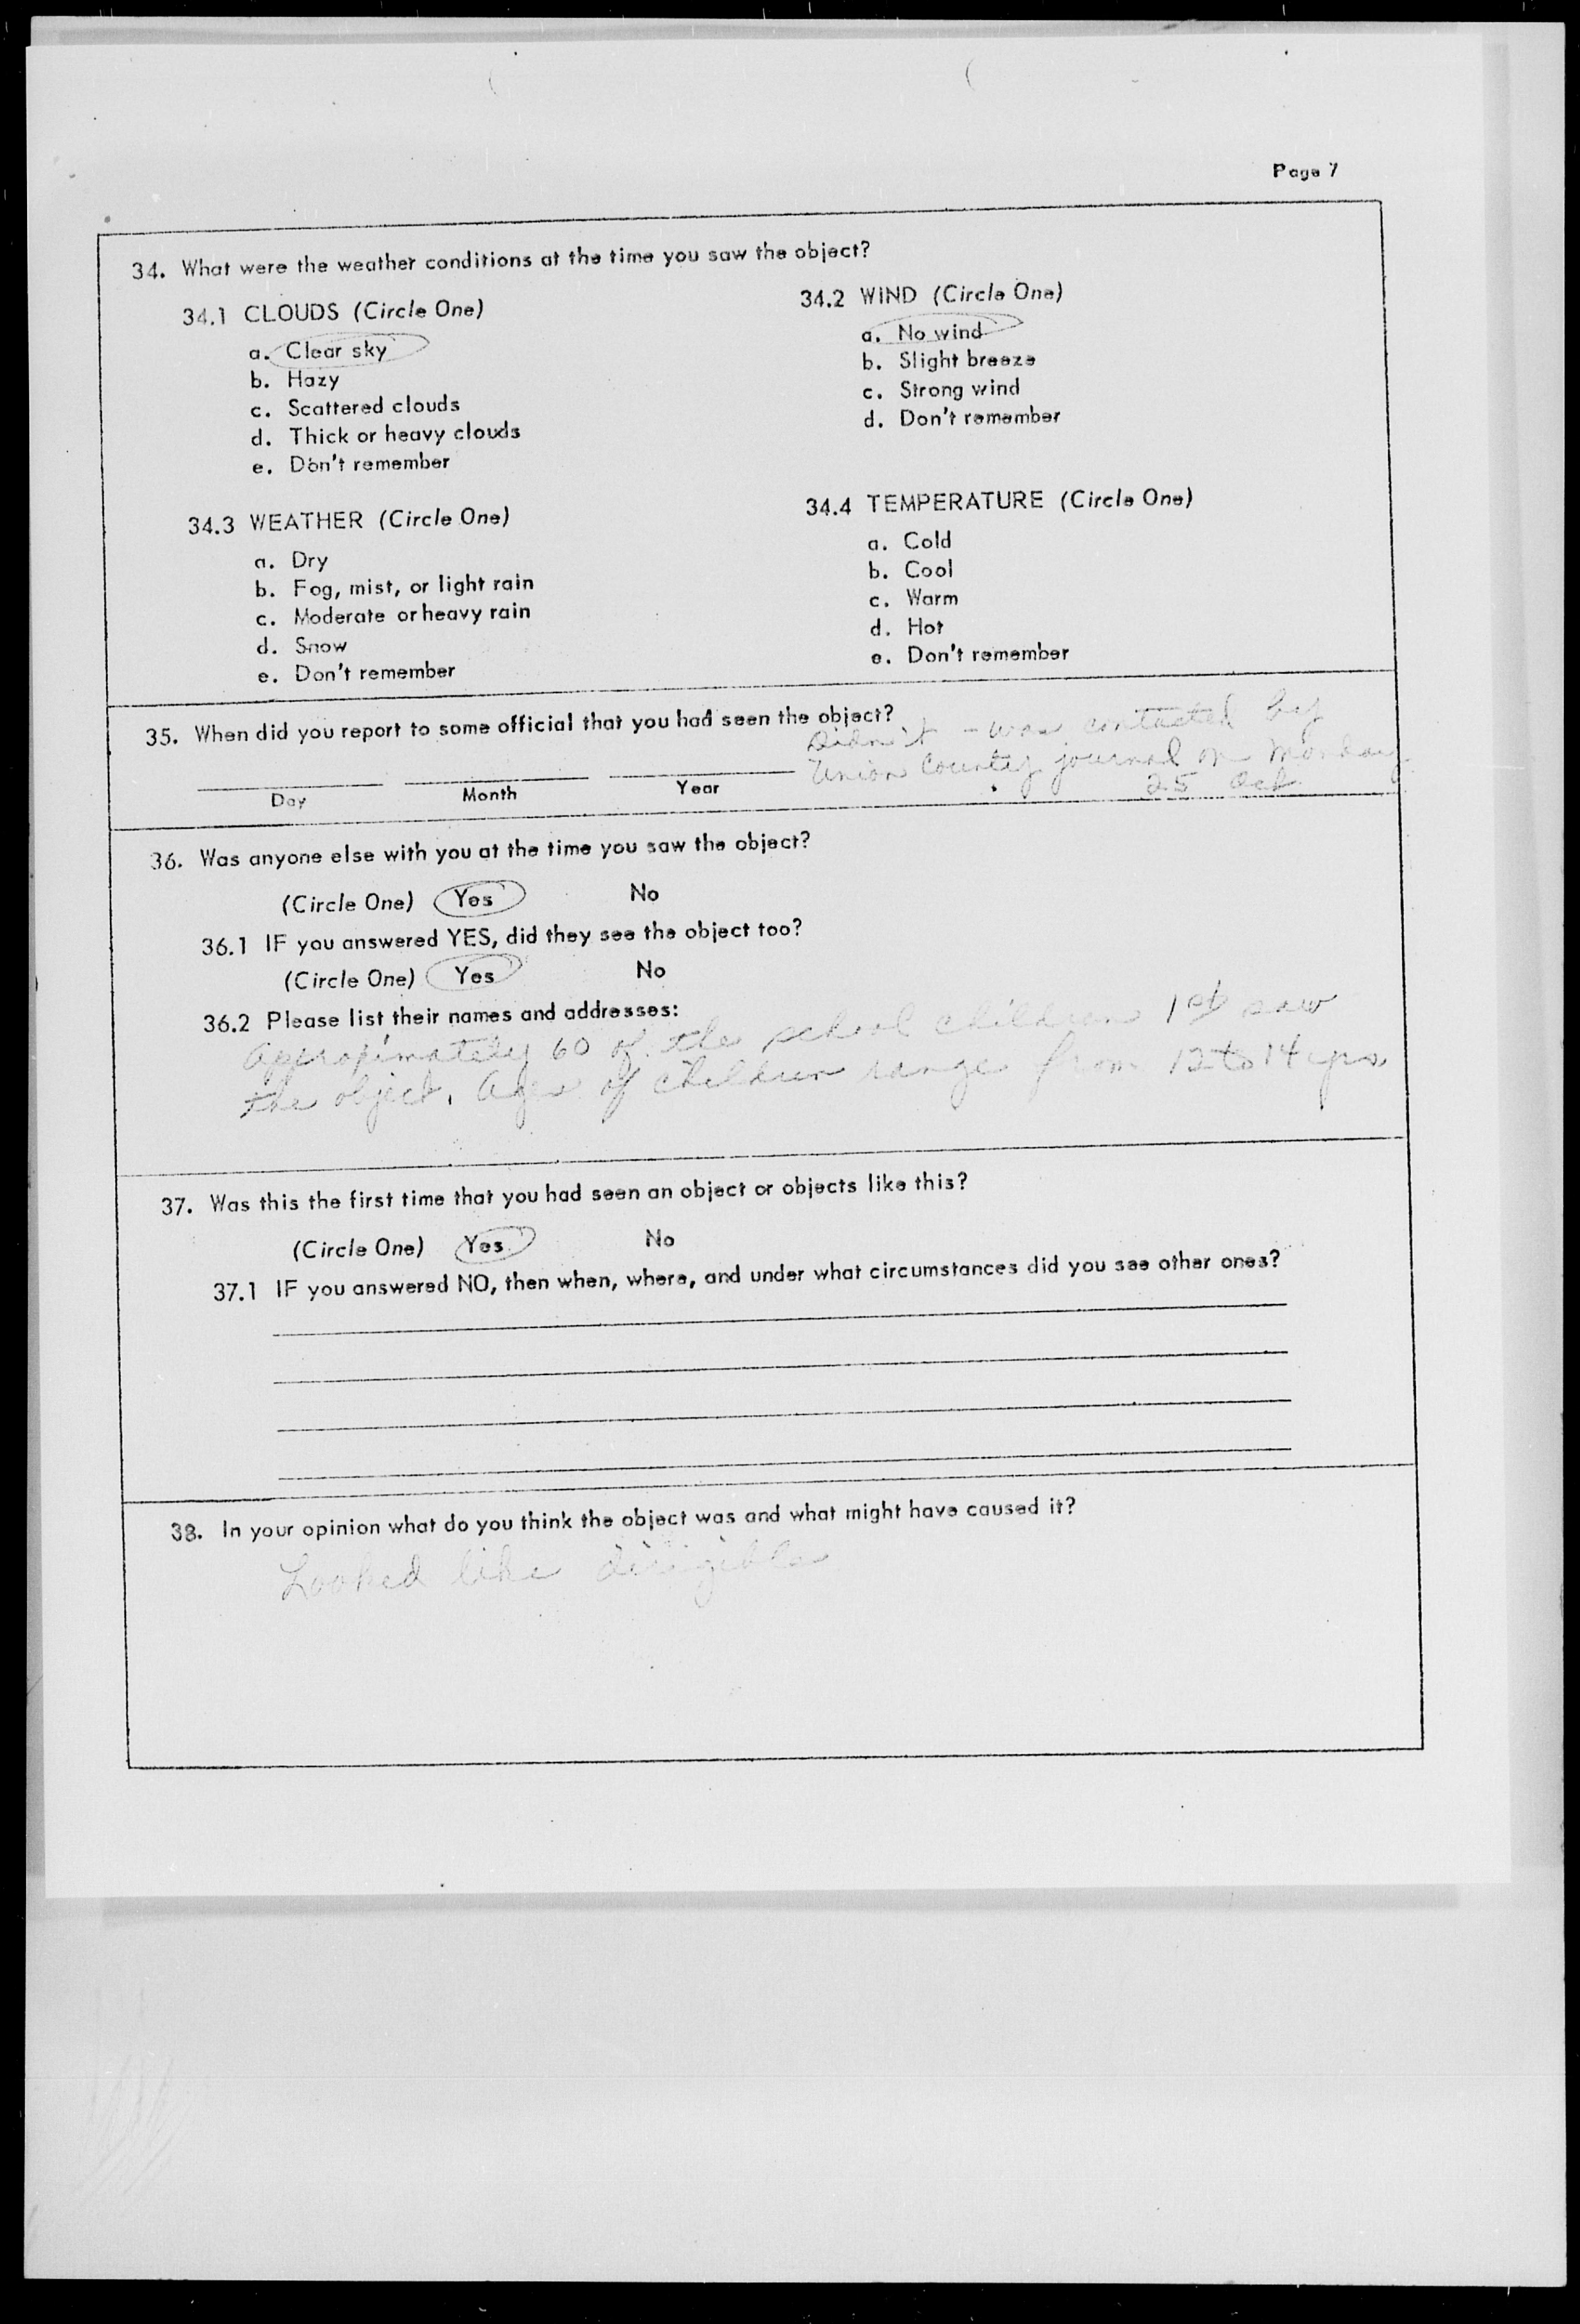 Page 7
34. What were the weather conditions at the time you saw the object?
34.1 CLOUDS (Circle One)
a. Clear sky
b. Hazy
c. Scattered clouds
d. Thick or heavy clouds
e. Don't remember
34.2 WIND (Circle One)
a. No wind
b. Slight breeze
c. Strong wind
d. Don't remember
34.3 WEATHER (Circle One)
a. Dry
b. Fog, mist, or light rain
c. Moderate or heavy rain
d. Snow
e. Don't remember
34.4 TEMPERATURE (Circle One)
a. Cold
b. Cool
c. Warm
d. Hot
e. Don't remember
35. When did you report to some official that you had seen the object?
Didn't - was contacted by
Union County journal on Monday
25 Oct
Day Month Year
36. Was anyone else with you at the time you saw the object?
(Circle One) Yes No
36.1 IF you answered YES, did they see the object too?
(Circle One) Yes No
36.2 Please list their names and addresses:
Approximately 60 of the school children 1st saw
the object. Ages of children range from 12 to 14 yrs
37. Was this the first time that you had seen an object or objects like this?
(Circle One) Yes No
37.1 IF you answered NO, then when, where, and under what circumstances did you see other ones?
38. In your opinion what do you think the object was and what might have caused it?
Looked like dirigible